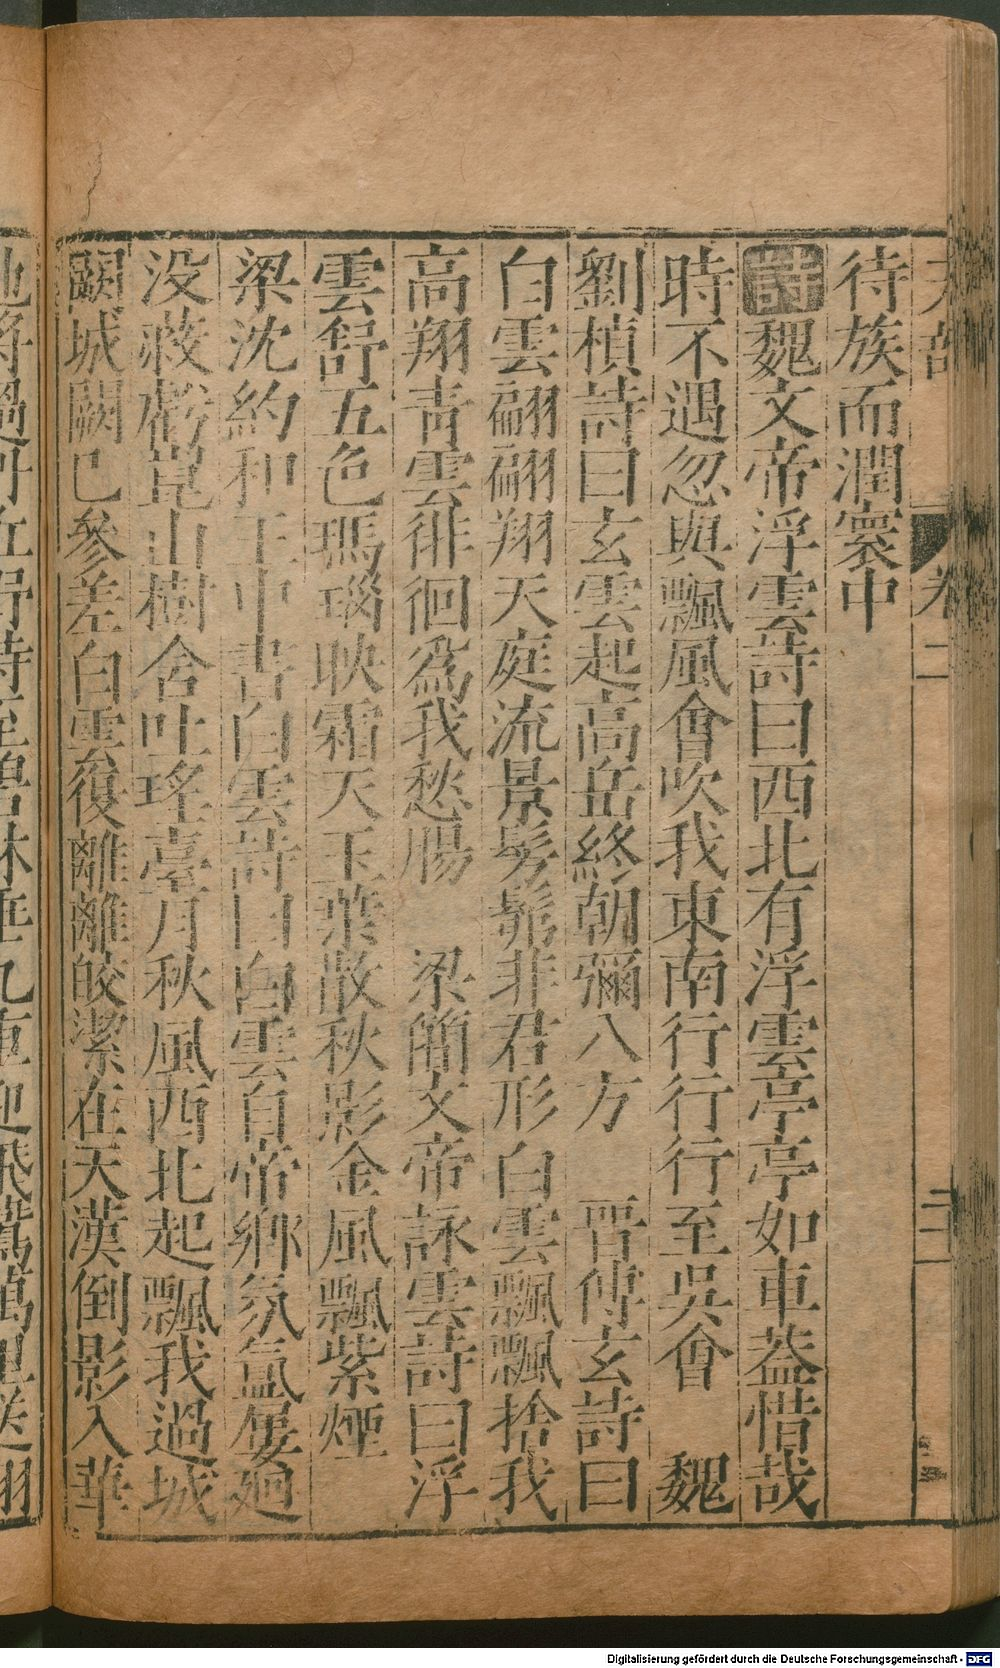 待族而潤寰中
詩魏文帝浮雲詩曰西北有浮雲亭亭如車葢惜哉
時不遇忽與飄風會吹我東南行行行至吳會 魏
劉楨詩曰玄雲起高岳終朝彌八方 晉傅玄詩曰
白雲翩翩翔天庭流景髣髴非君形白雲飄飄捨我
高翔青雲徘徊爲我愁腸 梁簡文帝詠雲詩曰浮
雲舒五色瑪瑙映霜天玉葉散秋影金風飄紫煙
梁沈約和王中書白雲詩曰白雲自帝鄉氛氳屢廻
没蔽虧崑山樹含吐瑤臺月秋風西北起飄我過城
闕城闕已參差白雲復離離皎潔在天漢倒影入華
卷二
二
Digitalisierung gefördert durch die Deutsche Forschungsgemeinschaft - DFG